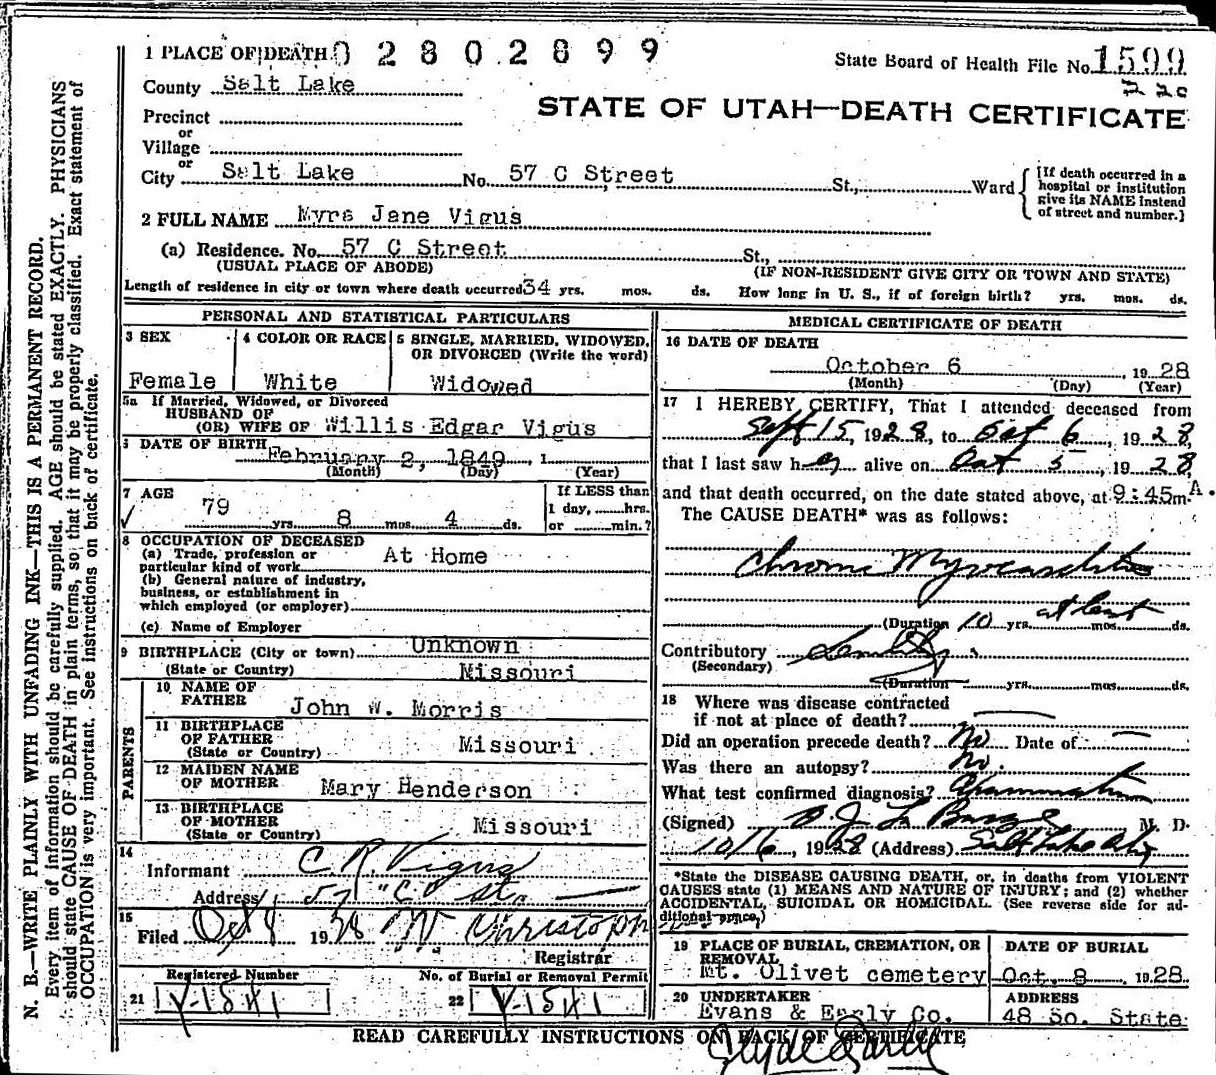 1 PLACE OF DEATH 0 2 8 0 2 8 9 9
State Board of Health File No. 1599
220
County Salt Lake
STATE OF UTAH—DEATH CERTIFICATE
Precinct
or
Village
or
City Salt Lake No. 57 C Street St., Ward
[If death occurred in a
hospital or institution
give its NAME instead
of street and number.]
2 FULL NAME Myra Jane Vigus
(a) Residence. No. 57 C Street St.,
(USUAL PLACE OF ABODE) (IF NON-RESIDENT GIVE CITY OR TOWN AND STATE)
Length of residence in city or town where death occurred 34 yrs. mos. ds. How long in U. S., if of foreign birth? yrs. mos. ds.
PERSONAL AND STATISTICAL PARTICULARS
3 SEX
Female
4 COLOR OR RACE
White
5 SINGLE, MARRIED, WIDOWED,
OR DIVORCED (Write the word)
Widowed
5a If Married, Widowed, or Divorced
HUSBAND OF
(OR) WIFE OF Willis Edgar Vigus
6 DATE OF BIRTH
February 2, 1849, 1
(Month) (Day) (Year)
7 AGE
79 yrs. 8 mos. 4 ds.
If LESS than
1 day, hrs.
or min.?
8 OCCUPATION OF DECEASED
(a) Trade, profession or
particular kind of work At Home
(b) General nature of industry,
business, or establishment in
which employed (or employer)
(c) Name of Employer
9 BIRTHPLACE (City or town) Unknown
(State or Country) Missouri
PARENTS
10 NAME OF
FATHER John W. Morris
11 BIRTHPLACE
OF FATHER
(State or Country) Missouri
12 MAIDEN NAME
OF MOTHER Mary Henderson
13 BIRTHPLACE
OF MOTHER
(State or Country) Missouri
14
Informant C. R. Vigus
Address 57 "C" St.
15
Filed Oct 8 1928 W Christoph
Registrar
Registered Number
21 Y-1541
No. of Burial or Removal Permit
22 Y-1541
MEDICAL CERTIFICATE OF DEATH
16 DATE OF DEATH
October 6, 1928
(Month) (Day) (Year)
17 I HEREBY CERTIFY, That I attended deceased from
Sept 15, 1928, to Oct 6, 1928,
that I last saw her alive on Oct 5, 1928,
and that death occurred, on the date stated above, at 9:45m A.
The CAUSE DEATH* was as follows:
Chronic Myocarditis
at least
(Duration 10 yrs. mos. ds.
Contributory Senility
(Secondary)
(Duration yrs. mos. ds.
18 Where was disease contracted
if not at place of death?
Did an operation precede death? No Date of
Was there an autopsy? No.
What test confirmed diagnosis? Examination
(Signed) M. D.
10/6, 1928 (Address) Salt Lake City
*State the DISEASE CAUSING DEATH, or, in deaths from VIOLENT
CAUSES state (1) MEANS AND NATURE OF INJURY; and (2) whether
ACCIDENTAL, SUICIDAL OR HOMICIDAL. (See reverse side for ad-
ditional space.)
19 PLACE OF BURIAL, CREMATION, OR
REMOVAL
Mt. Olivet cemetery
DATE OF BURIAL
Oct. 8 1928.
20 UNDERTAKER
Evans & Early Co.
ADDRESS
48 So. State
READ CAREFULLY INSTRUCTIONS ON BACK OF CERTIFICATE
Clyde Early
N. B.—WRITE PLAINLY WITH UNFADING INK—THIS IS A PERMANENT RECORD.
Every item of information should be carefully supplied. AGE should be stated EXACTLY. PHYSICIANS
should state CAUSE OF DEATH in plain terms, so that it may be properly classified. Exact statement of
OCCUPATION is very important. See instructions on back of certificate.